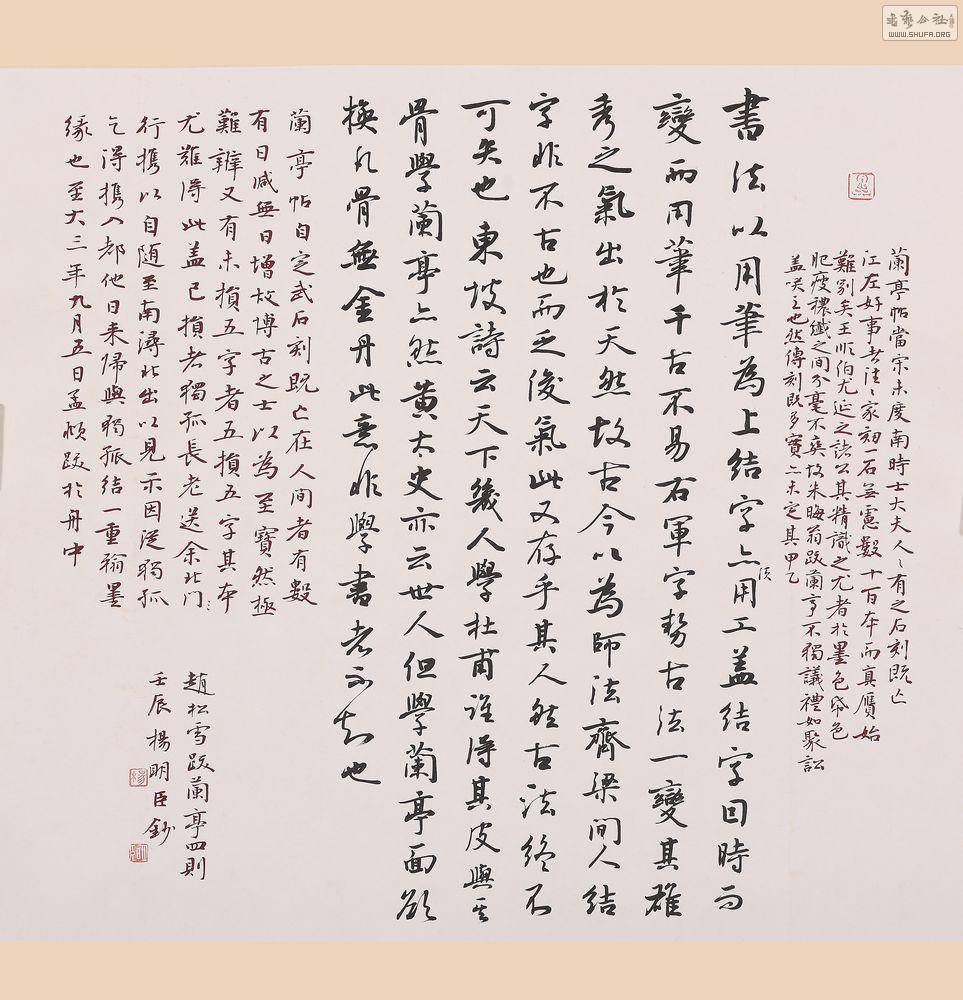 蘭亭帖當宋未度南時士大夫人〻有之石刻既亡
江左好事者往〻家刻一石無慮數十百本而真贗始
難別矣王順伯尤延之諸公其精識之尤者於墨色帋色
肥瘦穠纖之間分毫不爽故朱晦翁跋蘭亭不獨議禮如聚訟
盖笑之也然傳刻既多實亦未定其甲乙
書法以用筆為上結字亦須用工盖結字因時而
變而用筆千古不易右軍字勢古法一變其雄
秀之氣出於天然故古今以為師法齊梁間人結
字非不古也而乏俊氣此又存乎其人然古法終不
可失也東坡詩云天下幾人學杜甫誰得其皮與其
骨學蘭亭亦然黄太史亦云世人但學蘭亭面欲
換凡骨無金丹此意非學書者不知也
蘭亭帖自定武石刻既亡在人間者有數
有日減無日增故博古之士以為至寶然極
難辨又有未損五字者五損五字其本
尤難得此盖已損者獨孤長老送余北門
行攜以自随至南潯北出以見示因從獨孤
乞得攜入都他日来歸與獨孤結一重翰墨
緣也至大三年九月五日孟頫跋於舟中
趙松雪跋蘭亭四則
壬辰楊明臣鈔
書藝公社
WWW.SHUFA.ORG